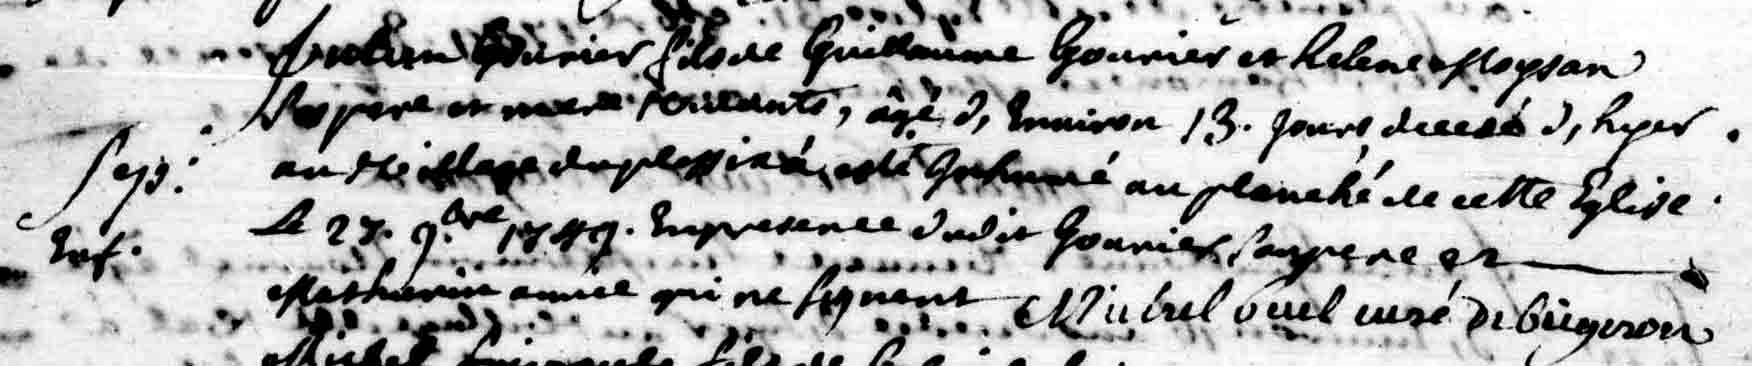 Julien Gourier fils de Guillaume Gourier et helene Moysan
Ses pere et mere residents, âgé d, Environ 13. jours, decedé d, hyer.
Sep.
au Village duplessix á esté Inhumé au planché de cette Eglise.
Enf.
Le 27. 9.bre 1749. En presence dudit Gourier, Son pere et
Mathurin qui ne signent Michel curé de
Michel fils de